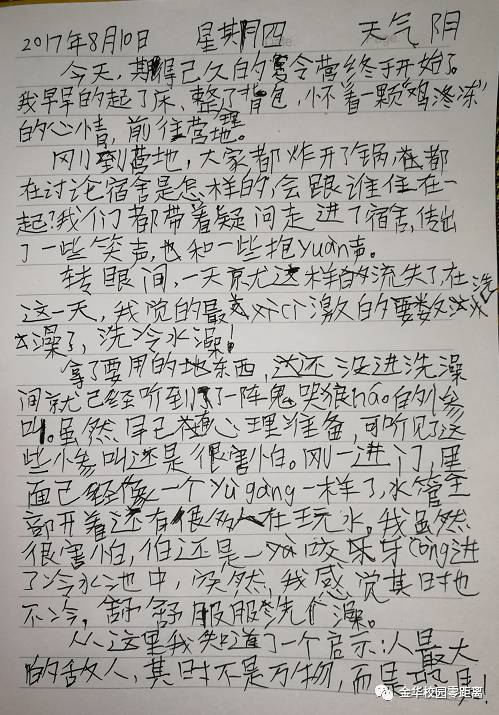 2017年8月10日 星期四 天气 阴
今天,期得己久的夏令营终于开始了。
我早早的起了床、整了背包,怀着一颗"鸡冻"
的心情,前往营地。
刚到营地,大家都炸开了锅,都
在讨论宿舍是怎样的,会跟谁住在一
起?我们都带着疑问走进了宿舍,传出
了一些笑声,也和一些抱yuàn声。
转眼间,一天就这样的流失了,在
这一天,我觉的最刺激的要数洗
澡了,洗冷水澡!
拿了要用的地东西,还没进洗澡
间就己经听到了一阵鬼哭狼háo的惨
叫。虽然早己做心理准备,可听见了这
些惨叫还是很害怕。刚一进门,里
面己经像一个yù gāng一样了,水管全
部开着还有很多人在玩水。我虽然
很害怕,但还是一yǎo咬牙cōng进
了冷水池中,突然,我感觉其时也
不冷,舒舒服服洗个澡。
从这里我知道了一个启示:人最大
的敌人,其时不是万物,而是
金华校园零距离